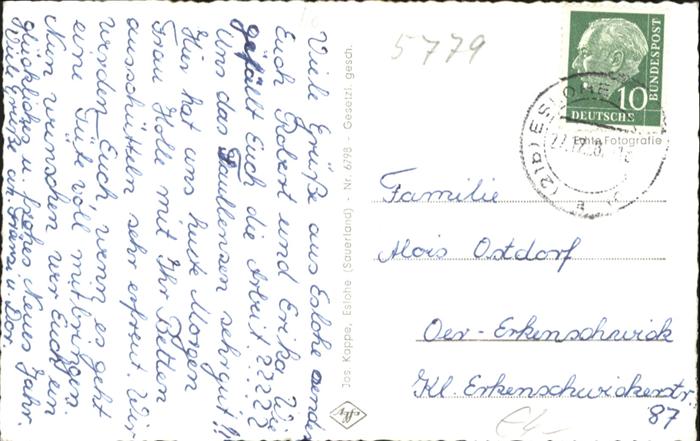 Viele Grüße aus Eslohe senden
Euch Robert und Erika. Wie
gefällt Euch die Arbeit?????
Uns das Faullensen sehr gut!!
Hier hat uns heute Morgen
Frau Holle mit Ihr Betten
ausschütteln sehr erfreut. Wir
werden Euch, wenn es geht
eine Tüte voll mitbringen.
Nun wünschen wir Euch ein
glückliches u. frohes Neues Jahr.
Viele Grüße an u. Dor.
Jos. Kappe, Eslohe (Sauerland) - Nr. 6798 - Gesetzl. gesch.
effy
5779
BUNDESPOST
10
DEUTSCHE
(21b) ESLOHE
Echte Fotografie
Familie
Alois Ostdorf
Oer-Erkenschwick
Kl. Erkenschwickerstr.
87